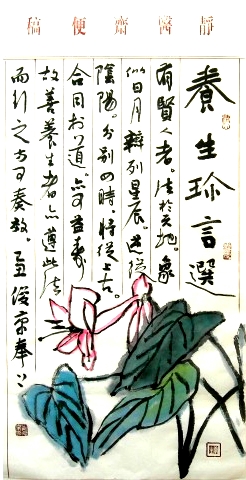 靜醫齋便稿
養生珍言選
有賢人者。法於天地。象
似日月辨列星辰。逆從
陰陽。分别四時,將從上古。
合同於道。亦可益壽
故善養生者亦遵此法
而行之方可奏效。俊京奉上